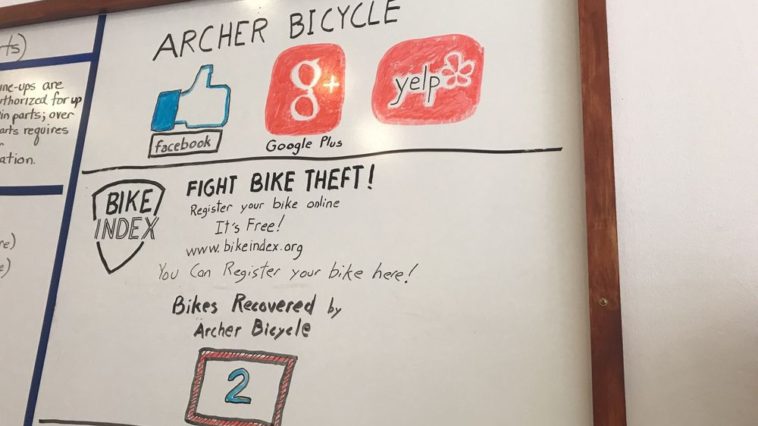 ARCHER BICYCLE
facebook
g+
Google Plus
yelp
are
for up
in parts; over
requires
BIKE
INDEX
FIGHT BIKE THEFT!
Register your bike online
It's Free!
www.bikeindex.org
You Can Register your bike here!
Bikes Recovered by
Archer Bicycle
2